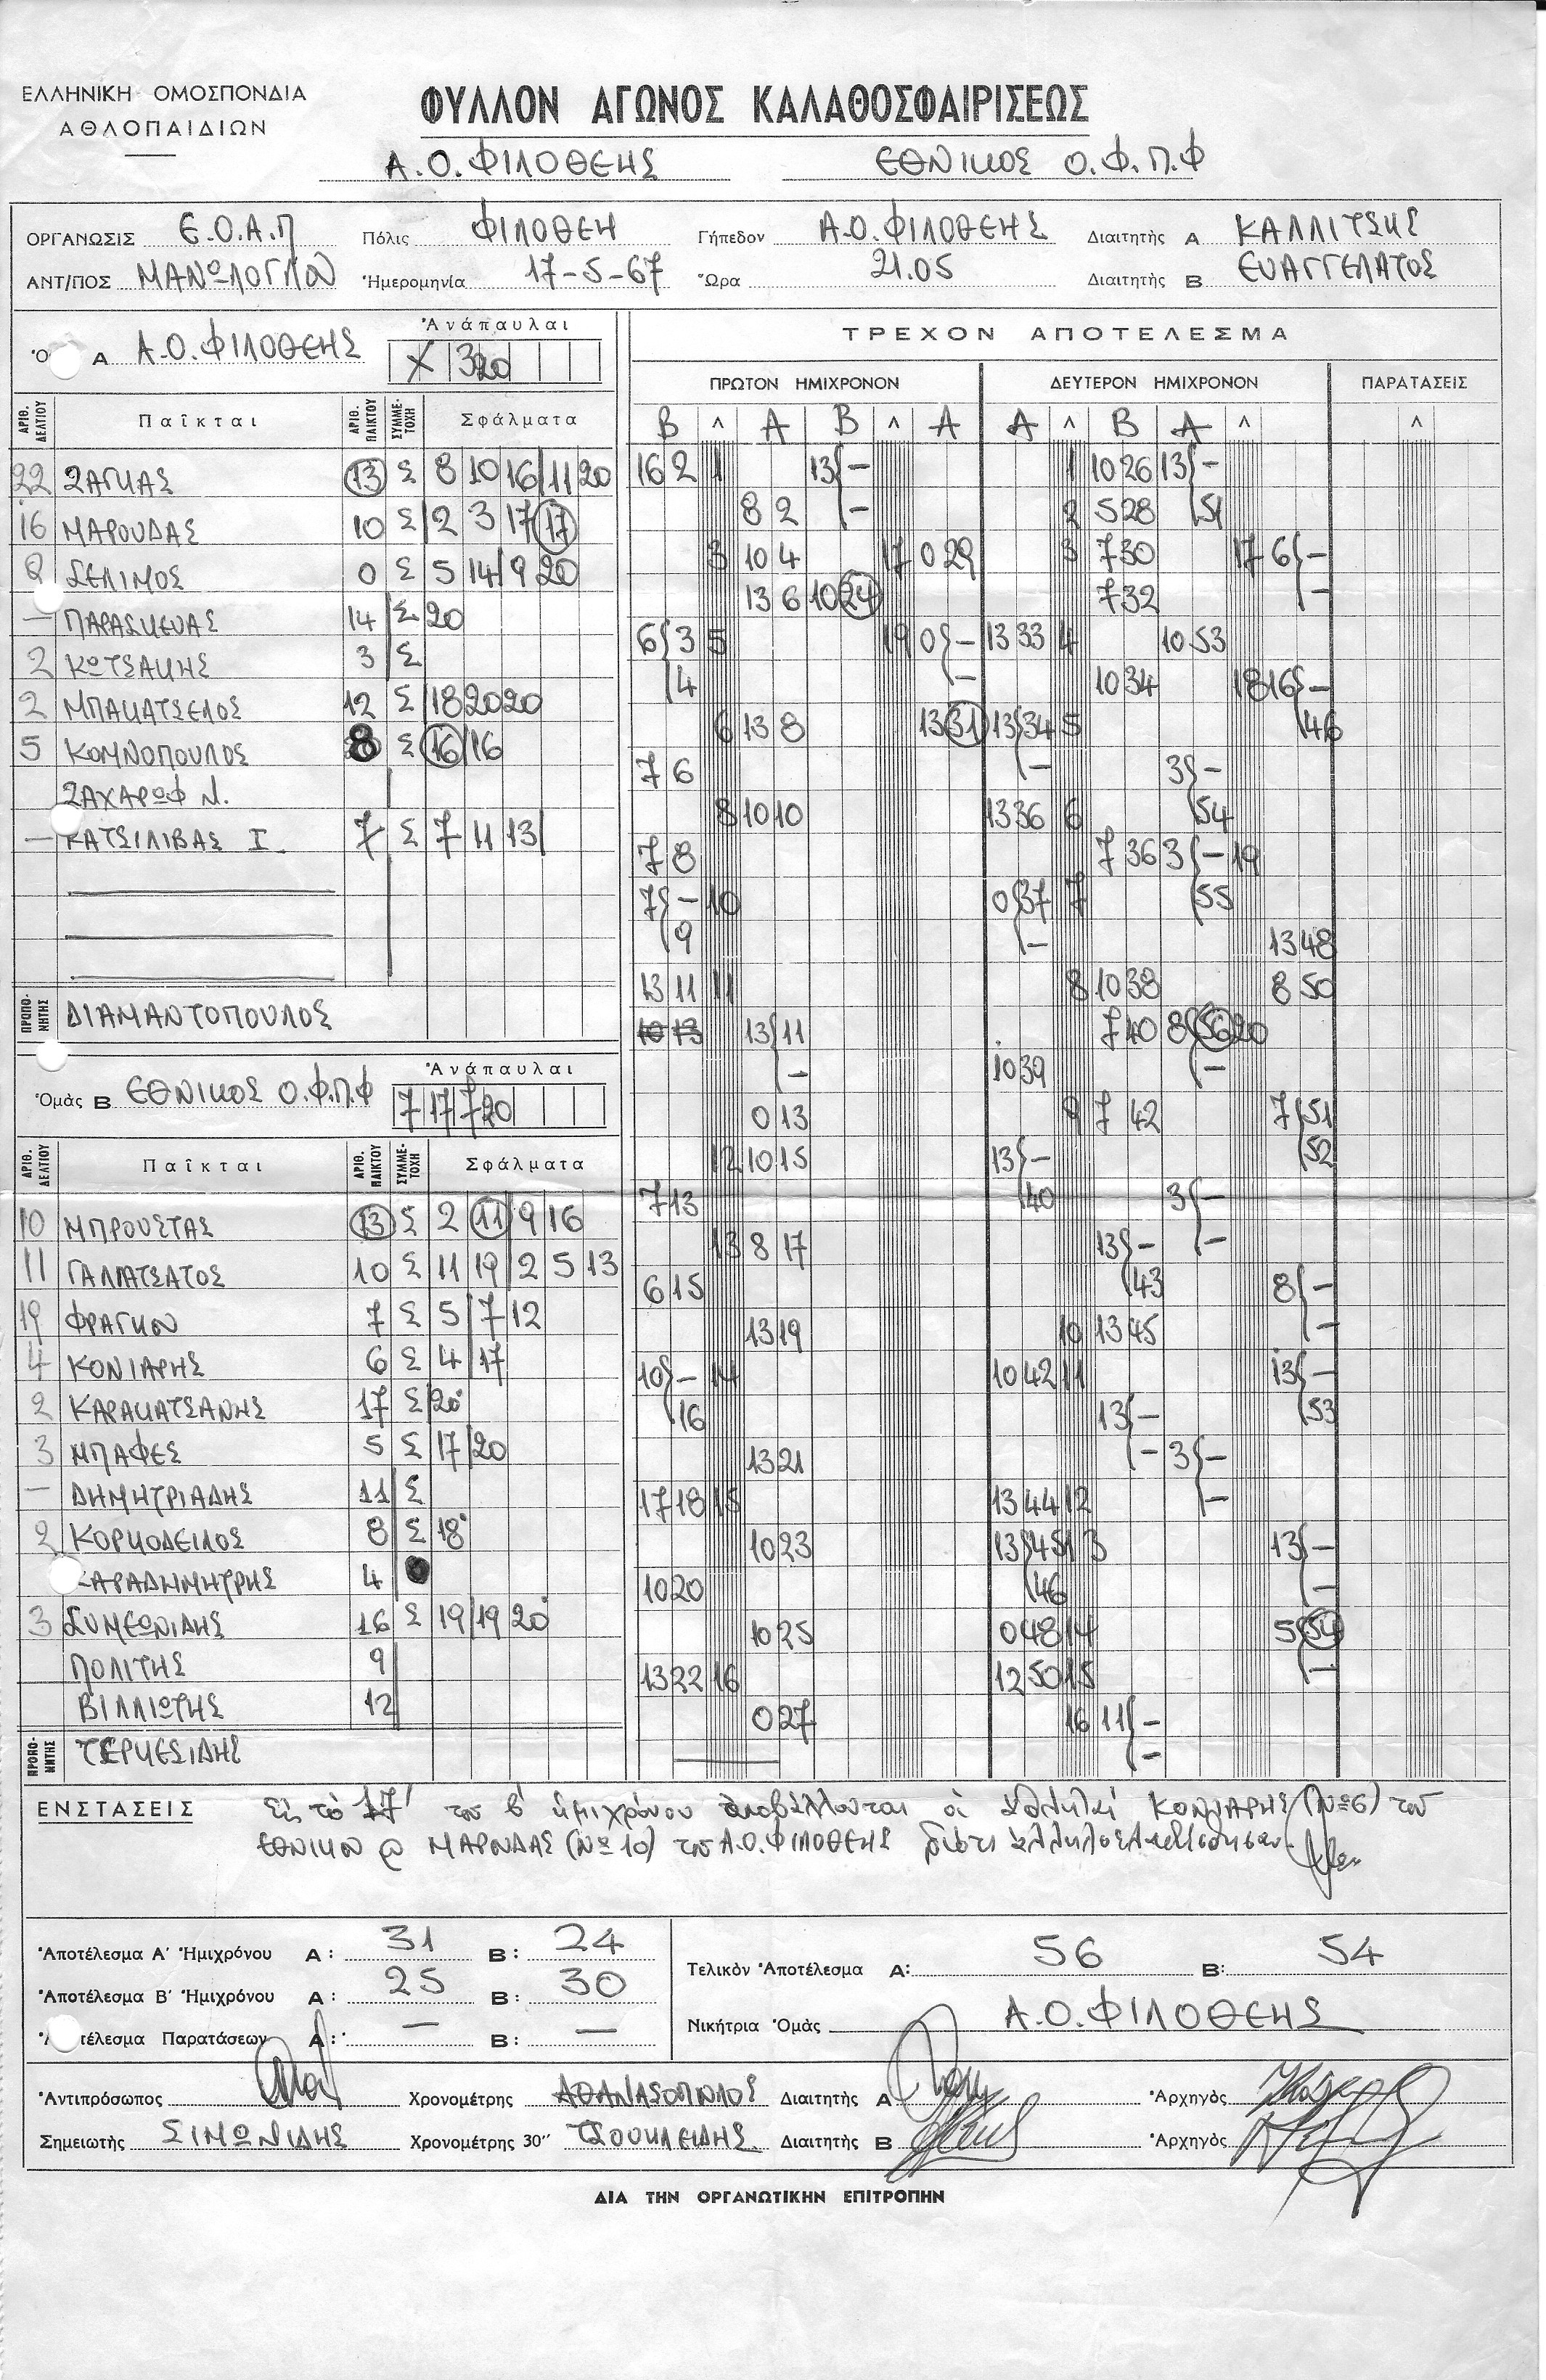 ΕΛΛΗΝΙΚΗ ΟΜΟΣΠΟΝΔΙΑ
ΑΘΛΟΠΑΙΔΙΩΝ
ΦΥΛΛΟΝ ΑΓΩΝΟΣ ΚΑΛΑΘΟΣΦΑΙΡΙΣΕΩΣ
Α.Ο.ΦΙΛΟΘΕΗΣ ΕΘΝΙΚΟΣ Ο.Φ.Π.Φ
ΟΡΓΑΝΩΣΙΣ Ε.Ο.Α.Π Πόλις ΦΙΛΟΘΕΗ Γήπεδον Α.Ο.ΦΙΛΟΘΕΗΣ Διαιτητὴς Α ΚΑΛΛΙΤΣΗΣ
ΑΝΤ/ΠΟΣ ΜΑΝΩΛΟΓΛΟΥ Ἡμερομηνία 17-5-67 Ὥρα 21.05 Διαιτητὴς Β ΕΥΑΓΓΕΛΑΤΟΣ
Α Α.Ο.ΦΙΛΟΘΕΗΣ Ἀνάπαυλαι
Χ 3 20
ΑΡΙΘ. ΔΕΛΤΙΟΥ Παῖκται ΑΡΙΘ. ΠΑΙΚΤΟΥ ΣΥΜΜΕΤΟΧΗ Σφάλματα
22 ΖΑΓΚΑΣ 13 Σ 8 10 16 11 20
16 ΜΑΡΟΥΔΑΣ 10 Σ 2 3 17 17
8 ΣΕΛΙΜΟΣ 0 Σ 5 14 9 20
— ΠΑΡΑΣΚΕΥΑΣ 14 Σ 20
2 ΚΩΤΣΑΚΗΣ 3 Σ
2 ΜΠΑΚΑΤΣΕΛΟΣ 12 Σ 18 20 20
5 ΚΟΜΝΟΠΟΥΛΟΣ 8 Σ 16 16
ΖΑΧΑΡΩΦ Ν.
— ΚΑΤΣΙΛΙΒΑΣ Ι. 7 Σ 7 11 13
ΠΡΟΠΟΝΗΤΗΣ ΔΙΑΜΑΝΤΟΠΟΥΛΟΣ
Ὁμὰς Β ΕΘΝΙΚΟΣ Ο.Φ.Π.Φ Ἀνάπαυλαι
7 17 7 20
ΑΡΙΘ. ΔΕΛΤΙΟΥ Παῖκται ΑΡΙΘ. ΠΑΙΚΤΟΥ ΣΥΜΜΕΤΟΧΗ Σφάλματα
10 ΜΠΡΟΥΣΤΑΣ 13 Σ 2 11 9 16
11 ΓΑΛΙΑΤΣΑΤΟΣ 10 Σ 11 19 2 5 13
19 ΦΡΑΓΚΟΥ 7 Σ 5 7 12
4 ΚΟΝΙΑΡΗΣ 6 Σ 4 17
2 ΚΑΡΑΚΑΤΣΑΝΗΣ 17 Σ 20
3 ΜΠΑΦΕΣ 5 Σ 17 20
— ΔΗΜΗΤΡΙΑΔΗΣ 11 Σ
2 ΚΟΡΚΟΔΕΙΛΟΣ 8 Σ 18
ΚΑΡΑΔΗΜΗΤΡΗΣ 4
3 ΣΥΜΕΩΝΙΔΗΣ 16 Σ 19 19 20
ΠΟΛΙΤΗΣ 9
ΒΙΛΛΙΩΤΗΣ 12
ΠΡΟΠΟΝΗΤΗΣ ΤΕΡΚΕΣΙΔΗΣ
ΤΡΕΧΟΝ ΑΠΟΤΕΛΕΣΜΑ
ΠΡΩΤΟΝ ΗΜΙΧΡΟΝΟΝ ΔΕΥΤΕΡΟΝ ΗΜΙΧΡΟΝΟΝ ΠΑΡΑΤΑΣΕΙΣ
Β ^ Α Β ^ Α Α ^ Β Α ^ ^
16 2 1 13 – 1 10 26 13 –
8 2 – 2 5 28 51
3 10 4 17 0 29 3 7 30 17 6 –
13 6 10 24 7 32 –
6 3 5 19 0 – 13 33 4 10 53
4 – 10 34 18 16 –
6 13 8 13 31 13 34 5 46
7 6 – 3 –
8 10 10 13 36 6 54
7 8 7 36 3 – 19
7 – 10 0 37 7 55
9 – 13 48
13 11 11 8 10 38 8 50
10 13 13 11 7 40 8 56 20
– 10 39 –
0 13 9 7 42 7 51
12 10 15 13 – 52
7 13 40 3 –
13 8 17 13 – –
6 15 43 8 –
13 19 10 13 45 –
10 – 14 10 42 11 13 –
16 13 – 53
13 21 – 3 –
17 18 15 13 44 12 –
10 23 13 45 13 13 –
10 20 46 –
10 25 0 48 14 5 54
13 22 16 12 50 15 –
0 27 16 11 –
–
ΕΝΣΤΑΣΕΙΣ Εἰς τὸ 17' του β' ἡμιχρόνου ἀποβάλλονται οἱ ἀθληταί ΚΟΝΙΑΡΗΣ (Νο 6) του
ΕΘΝΙΚΟΥ ΜΑΡΟΥΔΑΣ (Νο 10) του Α.Ο.ΦΙΛΟΘΕΗΣ διότι
Ἀποτέλεσμα Α' Ἡμιχρόνου Α: 31 Β: 24
Ἀποτέλεσμα Β' Ἡμιχρόνου Α: 25 Β: 30
Ἀποτέλεσμα Παρατάσεων Α: — Β: —
Τελικὸν Ἀποτέλεσμα Α: 56 Β: 54
Νικήτρια Ὁμὰς Α.Ο.ΦΙΛΟΘΕΗΣ
Ἀντιπρόσωπος Χρονομέτρης ΑΘΑΝΑΣΟΠΟΥΛΟΣ Διαιτητὴς Α Ἀρχηγὸς
Σημειωτὴς ΣΙΜΩΝΙΔΗΣ Χρονομέτρης 30" ΤΣΟΥΚΛΕΙΔΗΣ Διαιτητὴς Β Ἀρχηγὸς
ΔΙΑ ΤΗΝ ΟΡΓΑΝΩΤΙΚΗΝ ΕΠΙΤΡΟΠΗΝ